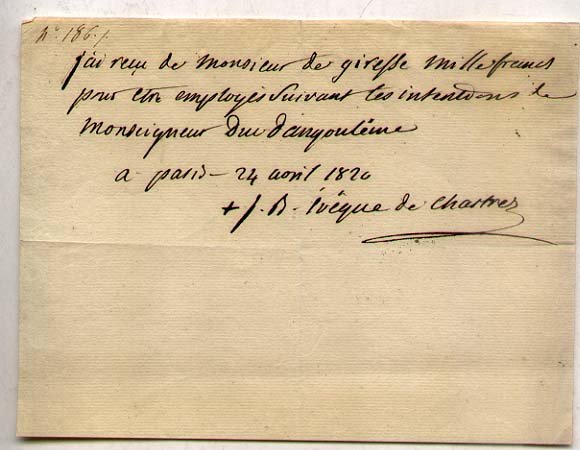 n° 186./
j'ai reçu de Monsieur de giresse mille francs
pour être employés suivant les intentions de
Monseigneur Duc d'angoulême
a paris - 24 avril 1820
+ J. B. Évêque de Chartres